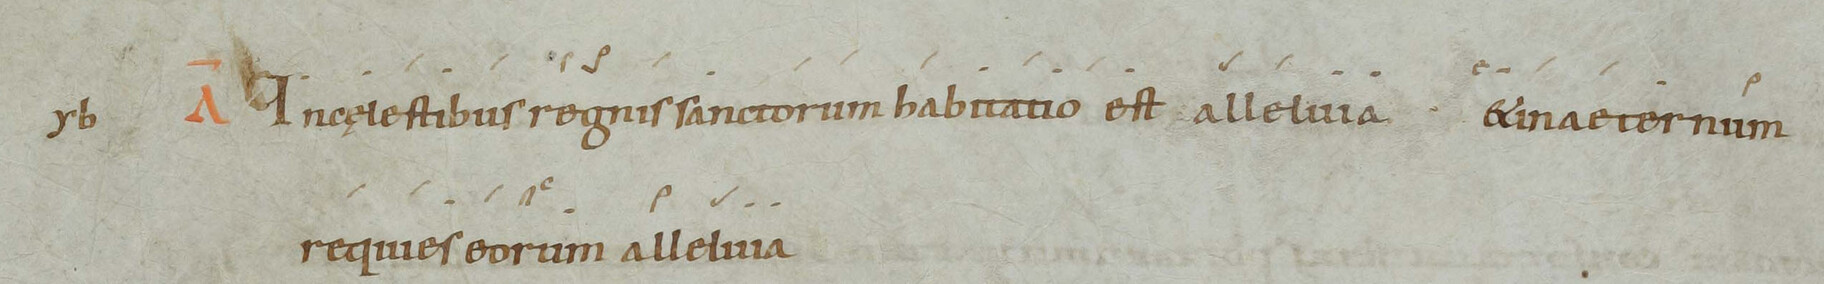 yb A In cęlestibus regnis sanctorum habitatio est alleluia · & in aeternum
requies eorum alleluia